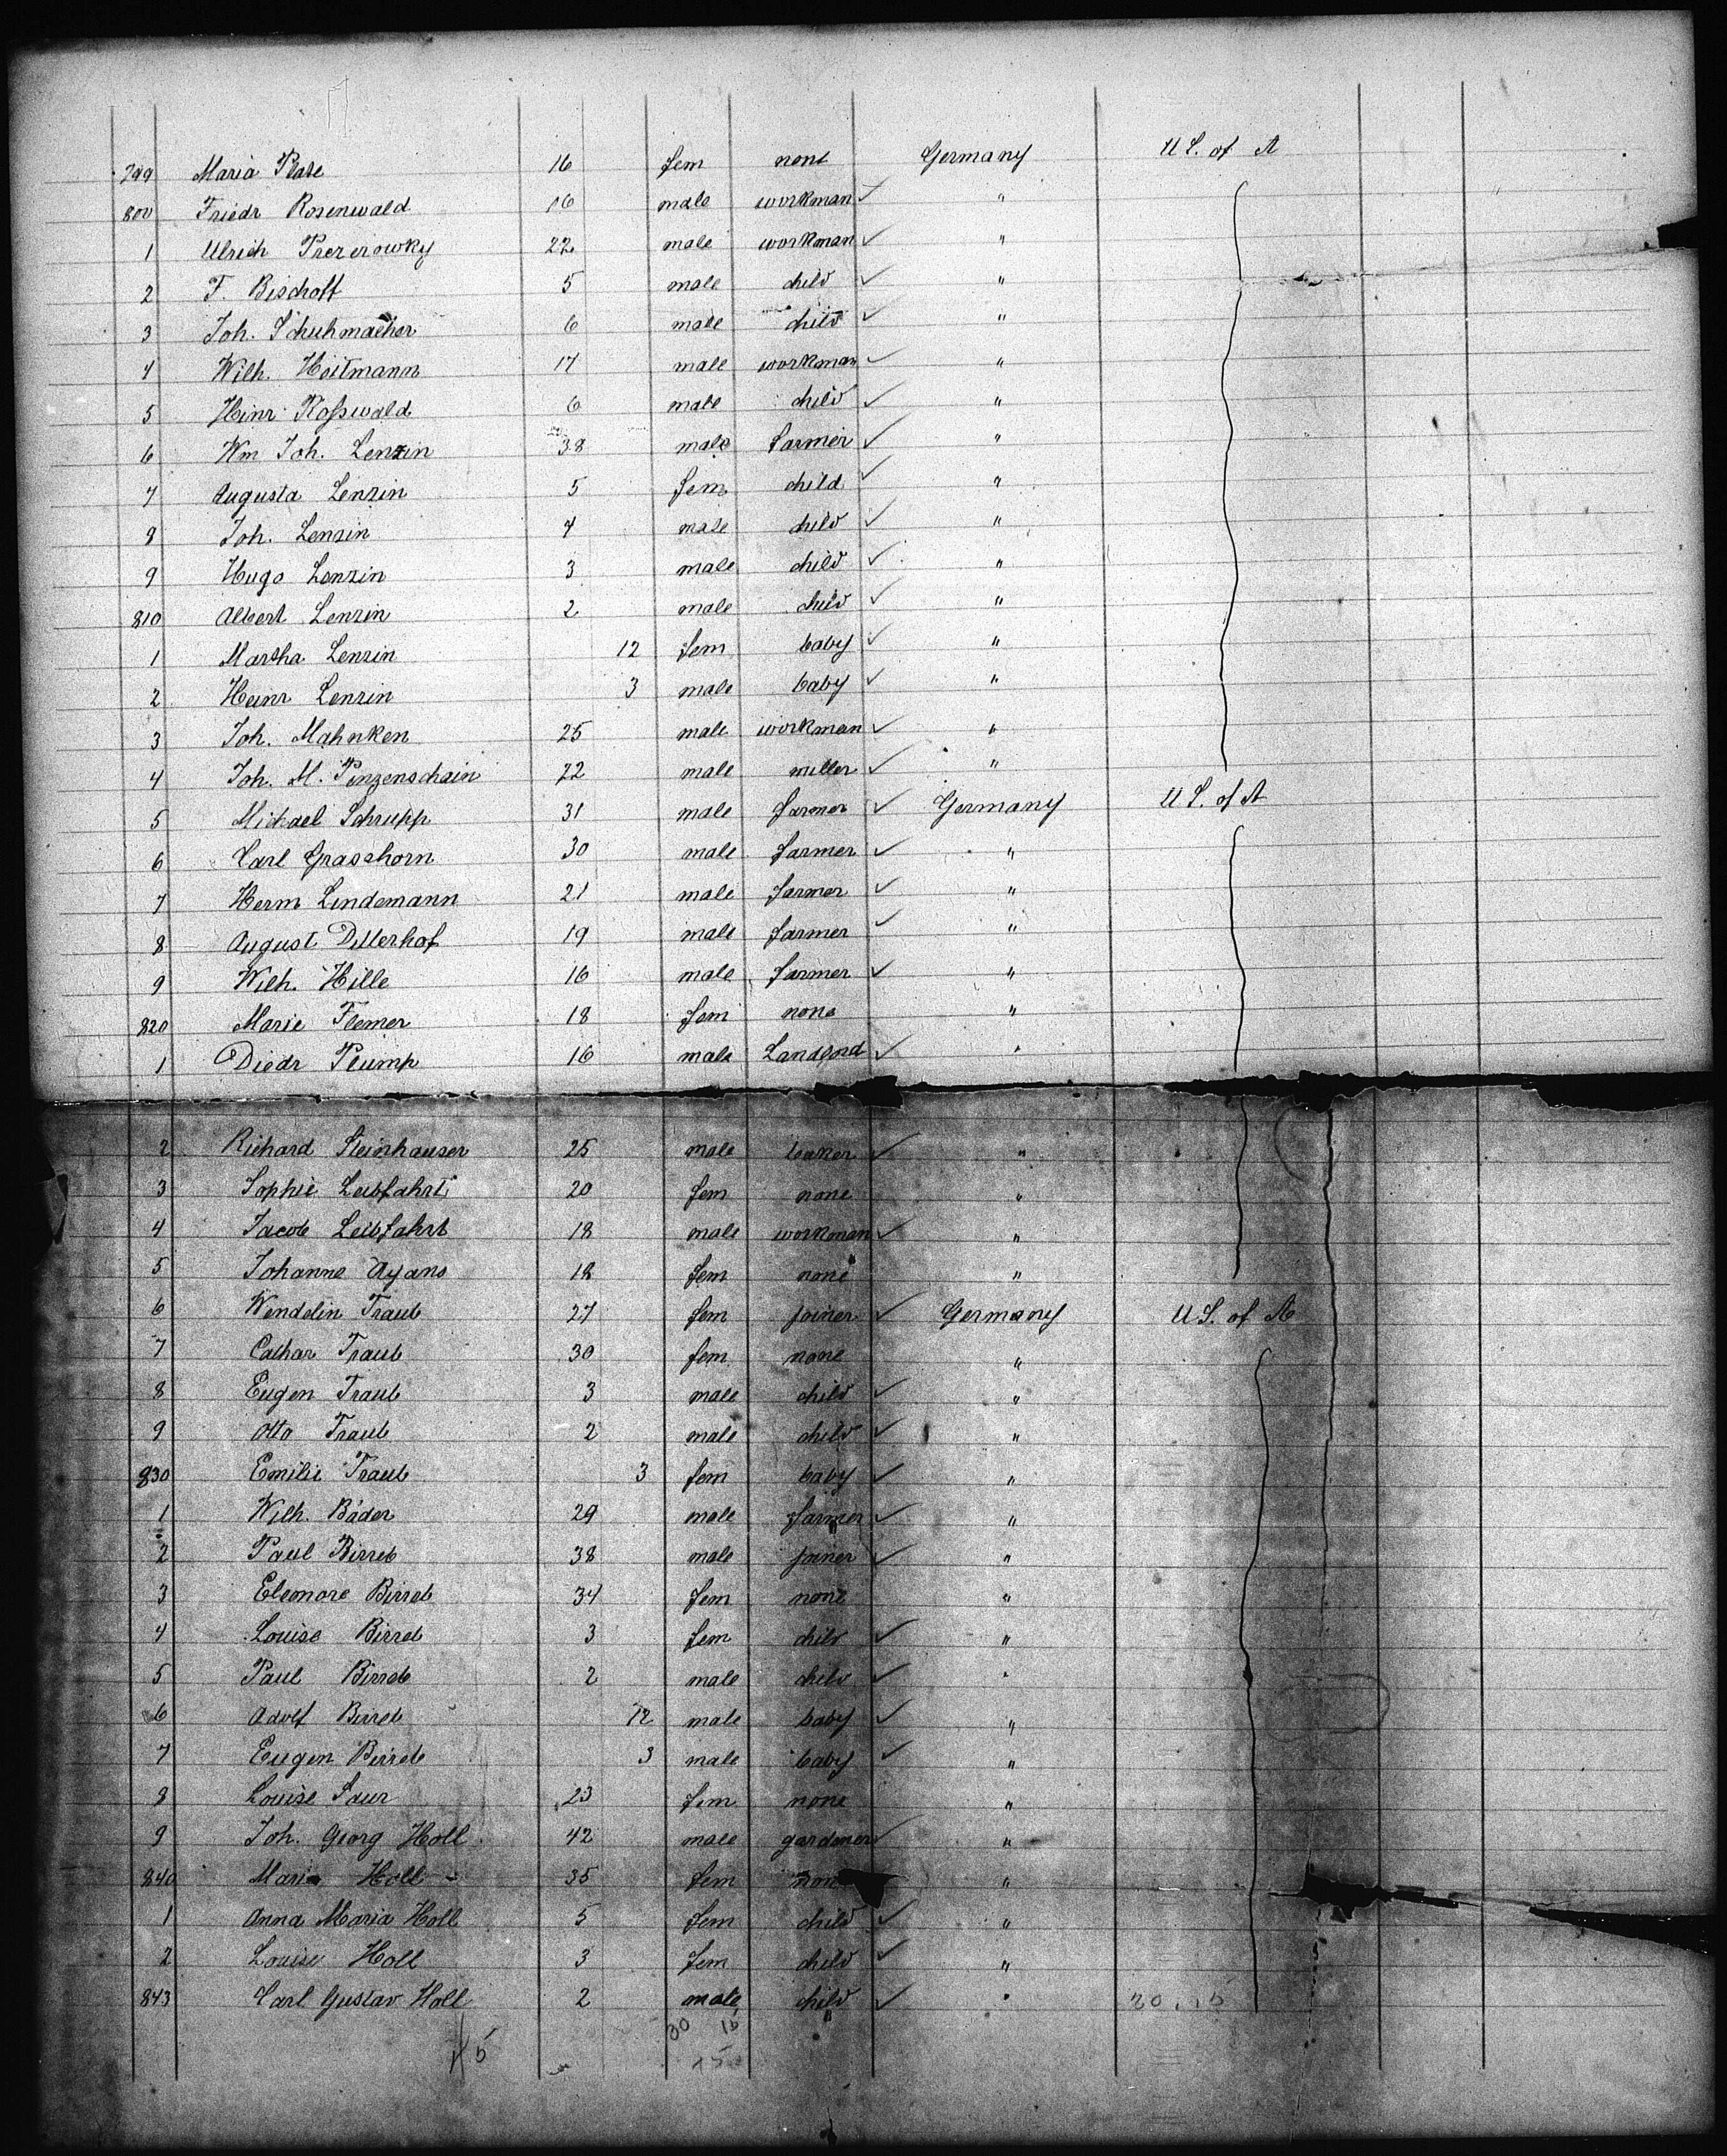 799 Maria Plate 16 fem none Germany U S. of A
800 Friedr Rosenwald 16 male workman ✓ "
1 Ulrich Prezerowky 22 male workman ✓ "
2 F. Bischoff 5 male child ✓ "
3 Joh. Schuhmacher 6 male child ✓ "
4 Wilh. Heitmann 17 male workman ✓ "
5 Heinr Rosswald 6 male child ✓ "
6 Wm Joh. Lenzin 38 male farmer ✓ "
7 Augusta Lenzin 5 fem child ✓ "
8 Joh. Lenzin 4 male child ✓ "
9 Hugo Lenzin 3 male child ✓ "
810 Albert Lenzin 2 male child ✓ "
1 Martha Lenzin 12 fem baby ✓ "
2 Heinr Lenzin 3 male baby ✓ "
3 Joh. Mahnken 25 male workman ✓ "
4 Joh. M. Penzenschain 22 male miller ✓ "
5 Michael Schrupp 31 male farmer ✓ Germany U S. of A
6 Carl Grasshorn 30 male farmer ✓ "
7 Herm Lindemann 21 male farmer ✓ "
8 August Dillerhof 19 male farmer ✓ "
9 Wilh. Hille 16 male farmer ✓ "
820 Marie Flemer 18 fem none "
1 Diedr Plump 16 male Landlord ✓ "
2 Richard Steinhauser 25 male baker ✓ "
3 Sophie Leibfahrt 20 fem none "
4 Jacob Leibfahrt 18 male workman ✓ "
5 Johanne Ayans 18 fem none "
6 Wendelin Traub 27 fem joiner ✓ Germany U S. of A
7 Cathar Traub 30 fem none "
8 Eugen Traub 3 male child ✓ "
9 Otto Traub 2 male child ✓ "
830 Emilie Traub 3 fem baby ✓ "
1 Wilh. Bäder 29 male farmer ✓ "
2 Paul Birreb 38 male joiner ✓ "
3 Eleonore Birreb 34 fem none "
4 Louise Birreb 3 fem child ✓ "
5 Paul Birreb 2 male child ✓ "
6 Adolf Birreb 12 male baby ✓ "
7 Eugen Birreb 3 male baby ✓ "
8 Louise Saur 23 fem none "
9 Joh. Georg Holl 42 male gardener ✓ "
840 Maria Holl 35 fem "
1 Anna Maria Holl 5 fem child ✓ "
2 Louise Holl 3 fem child ✓ "
843 Carl Gustav Holl 2 male child ✓ "
30 15
15